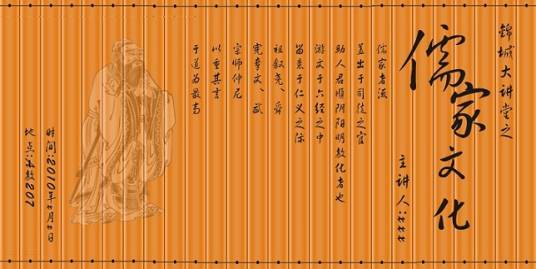 锦城大讲堂之
儒家文化
主讲人:××××
儒家者流
盖出于司徒之官
助人君顺阴阳明教化者也
游文于六经之中
留意于仁义之际
祖叙尧、舜
宪章文、武
宗师仲尼
以重其言
于道为最高
时间:2010年×月×日
地点:教207